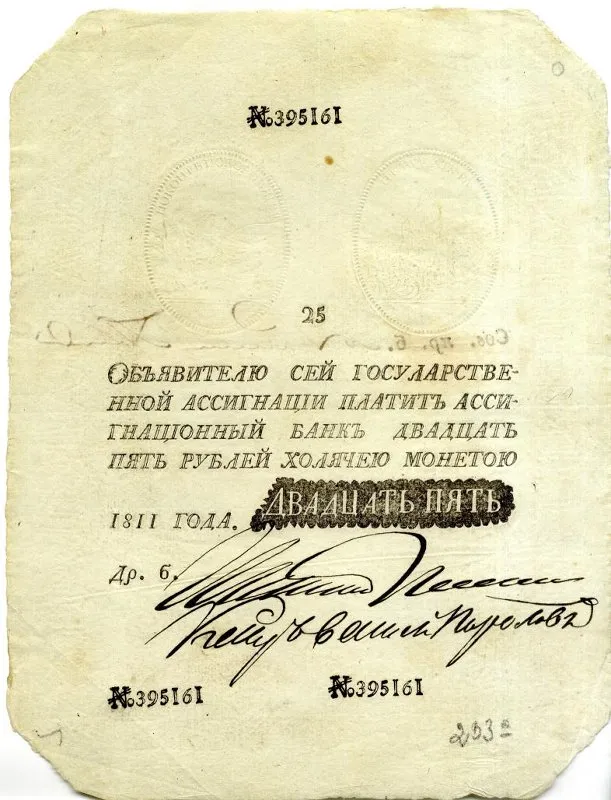 №395161
25
ОБЪЯВИТЕЛЮ СЕЙ ГОСУЛАРСТВЕ-
ННОЙ АССИГНАЦІИ ПЛАТИТЪ АССИ-
ГНАЦІОННЫЙ БАНКЪ ДВАДЦАТЬ
ПЯТЬ РУБЛЕЙ ХОЛЯЧЕЮ МОНЕТОЮ
1811 ГОДА. ДВАДЦАТЬ ПЯТЬ
Др. б.
№395161 №395161